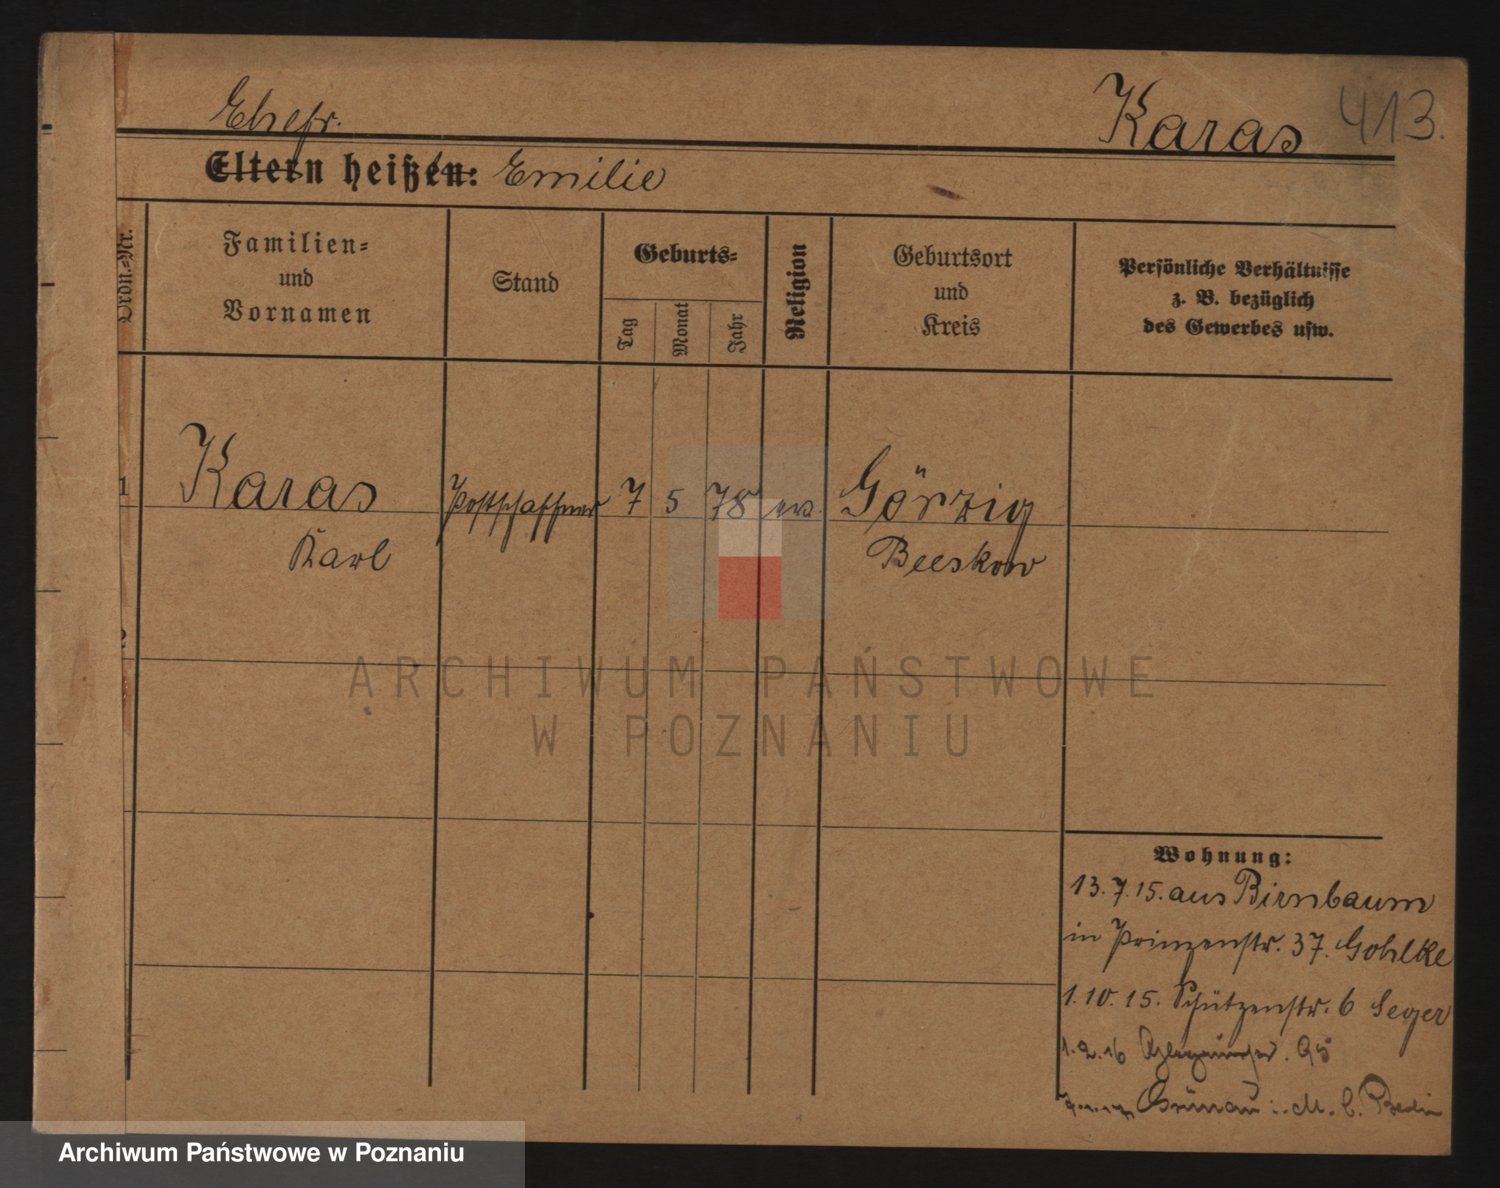 Karas 413.
Ehefr.
Eltern heißen: Emilie
Ordn.-Nr.
Familien-
und
Vornamen
Stand
Geburts-
Tag
Monat
Jahr
Religion
Geburtsort
und
Kreis
Persönliche Verhältnisse
z. B. bezüglich
des Gewerbes usw.
1 Karas Postschaffner 7 5 78 ev. Görzig
Karl Beeskow
2
ARCHIWUM PAŃSTWOWE
W POZNANIU
Wohnung:
13.7.15. aus Birnbaum
in Prinzenstr. 37. Gohlke
1.10.15. Schützenstr. 6 Seger
1.2.16
Grünau i. M. b. Berlin
Archiwum Państwowe w Poznaniu